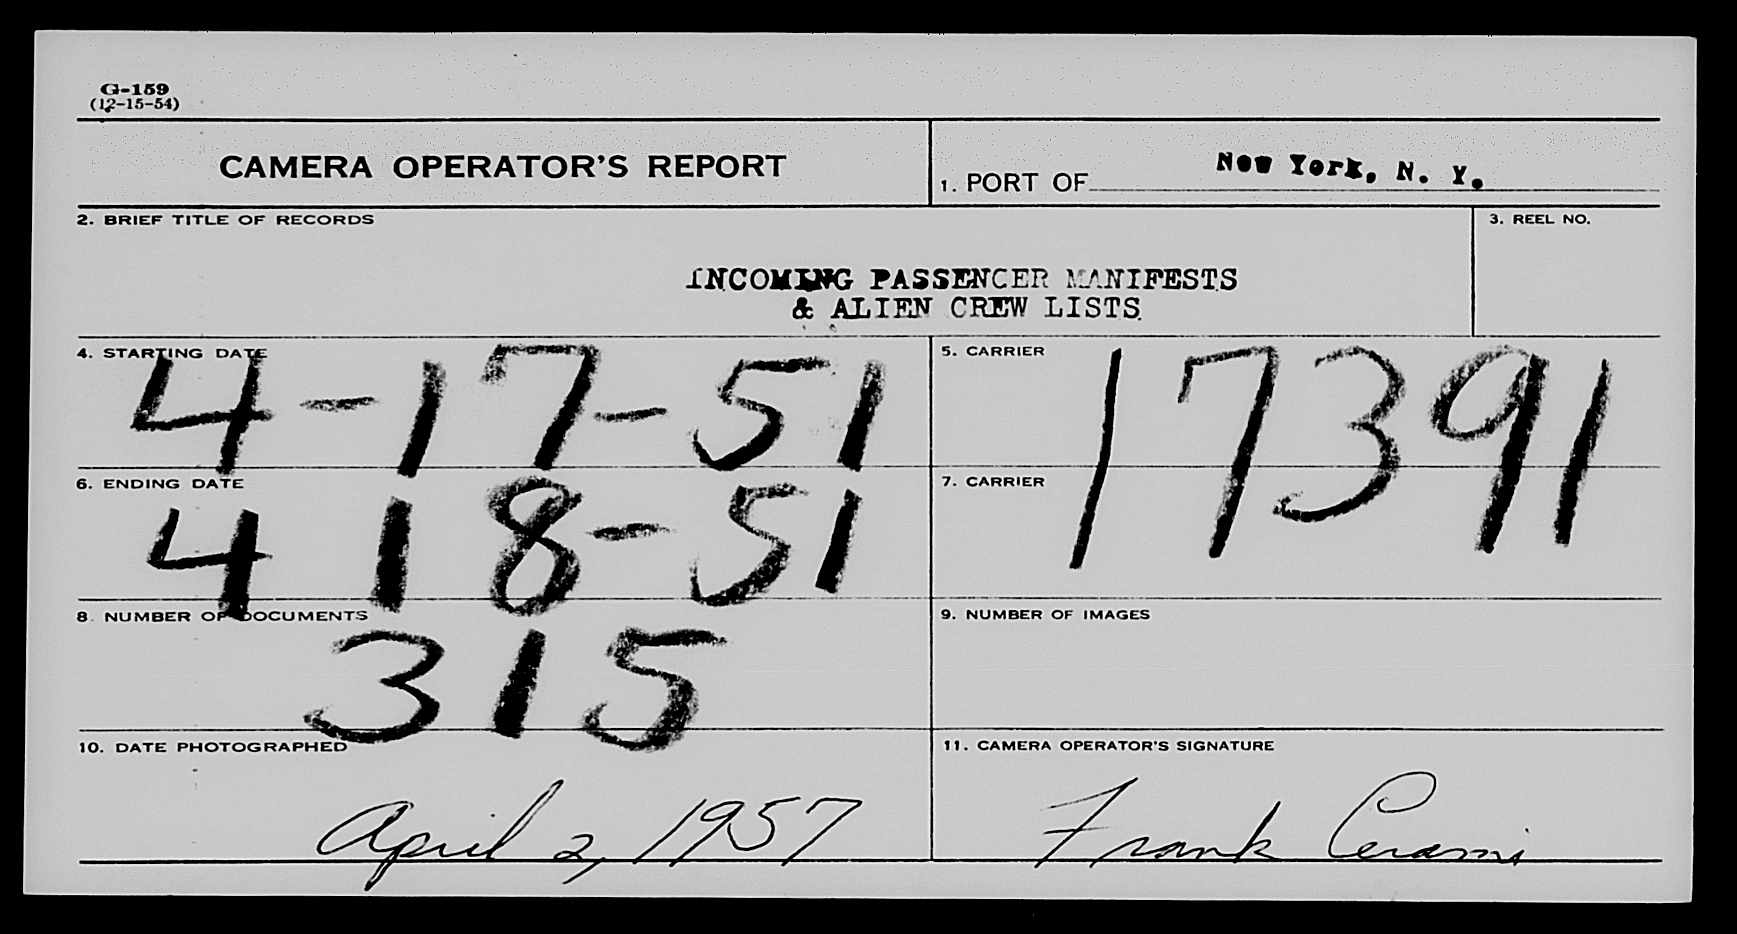 G-159
(12-15-54)
CAMERA OPERATOR'S REPORT
1. PORT OF New York, N. Y.
2. BRIEF TITLE OF RECORDS
3. REEL NO.
INCOMING PASSENGER MANIFESTS
& ALIEN CREW LISTS
4. STARTING DATE
4-17-51
5. CARRIER
17391
6. ENDING DATE
4 18-51
7. CARRIER
8. NUMBER OF DOCUMENTS
315
9. NUMBER OF IMAGES
10. DATE PHOTOGRAPHED
April 2, 1957
11. CAMERA OPERATOR'S SIGNATURE
Frank Cerami